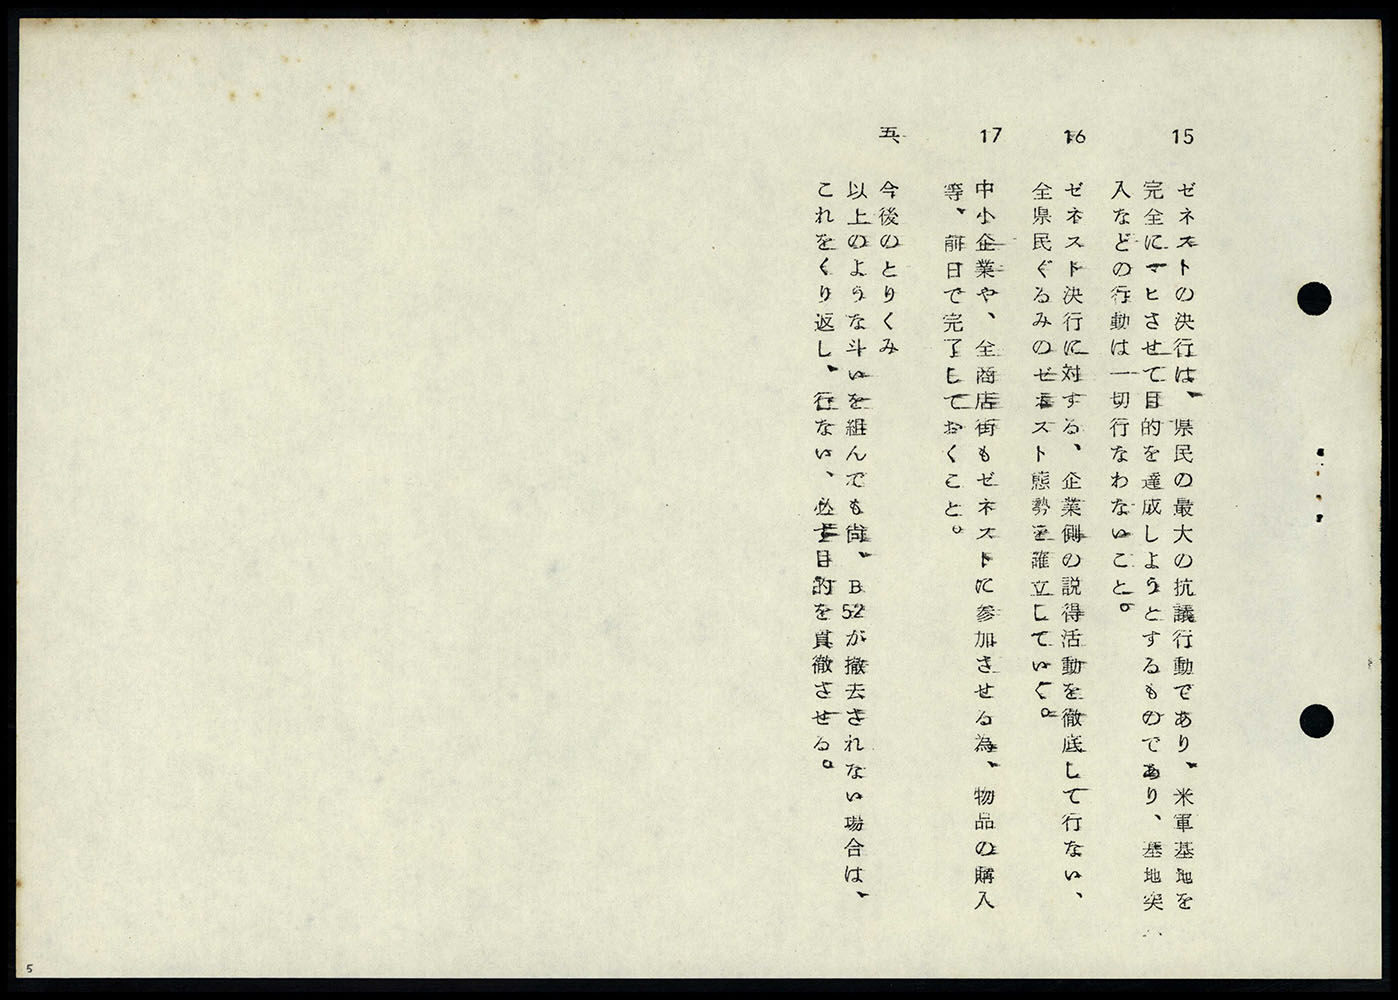 15 ゼネストの決行は、県民の最大の抗議行動であり、米軍基地を
完全にマヒさせて目的を達成しようとするものであり、基地突
入などの行動は一切行なわないこと。
16 ゼネスト決行に対する、企業側の説得活動を徹底して行ない、
全県民ぐるみのゼネスト態勢を確立していく。
17 中小企業や、全商店街もゼネストに参加させる為、物品の購入
等、前日で完了しておくこと。
五、今後のとりくみ
以上のような斗いを組んでも尚、B52が撤去されない場合は、
これをくり返し、行ない、必ず目的を貫徹させる。
5